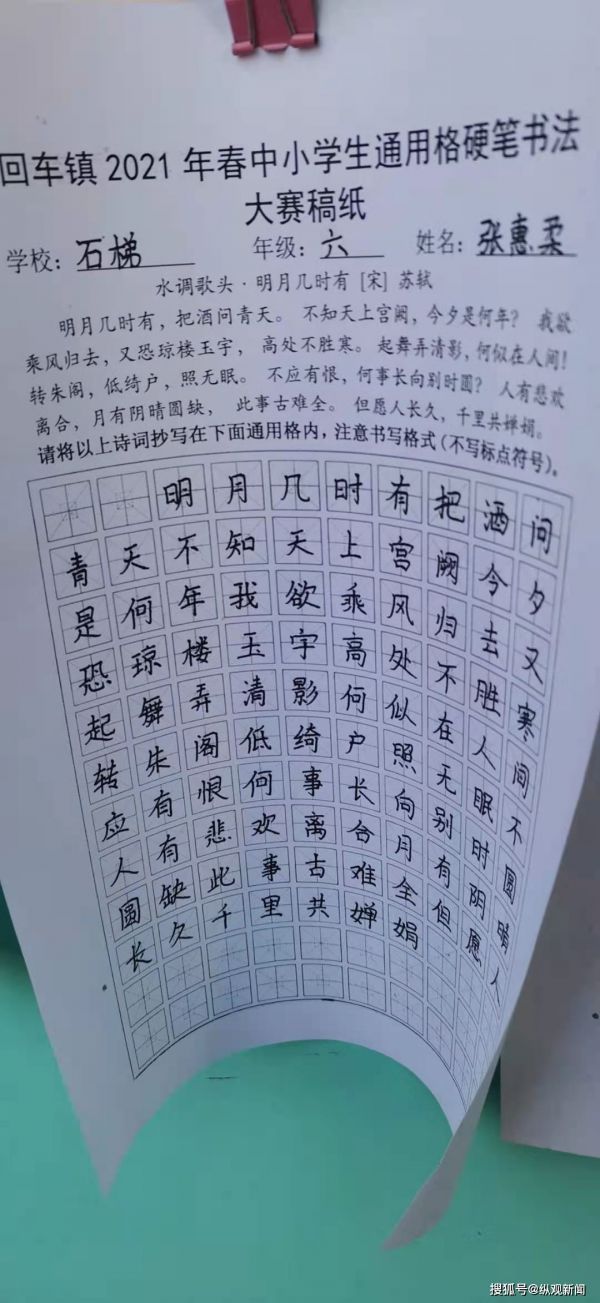 回车镇 2021 年春中小学生通用格硬笔书法
大赛稿纸
学校：石梯 年级：六 姓名：张惠柔
水调歌头·明月几时有 [宋] 苏轼
明月几时有，把酒问青天。 不知天上宫阙，今夕是何年？ 我欲
乘风归去，又恐琼楼玉宇， 高处不胜寒。 起舞弄清影，何似在人间！
转朱阁，低绮户，照无眠。 不应有恨，何事长向别时圆？ 人有悲欢
离合，月有阴晴圆缺， 此事古难全。 但愿人长久，千里共婵娟。
请将以上诗词抄写在下面通用格内，注意书写格式（不写标点符号）。
明月几时有把酒问
青天不知天上宫阙今夕
是何年我欲乘风归去又
恐琼楼玉宇高处不胜寒
起舞弄清影何似在人间
转朱阁低绮户照无眠不
应有恨何事长向别时圆
人有悲欢离合月有阴晴
圆缺此事古难全但愿人
长久千里共婵娟
搜狐号@纵观新闻